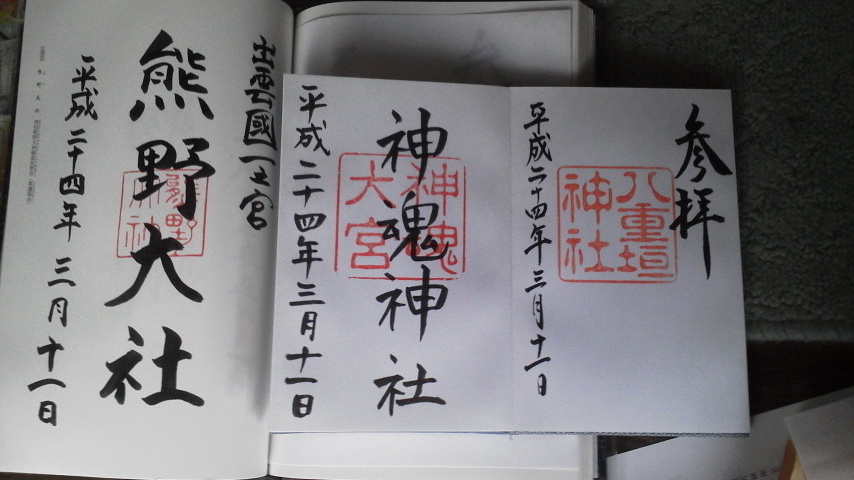 参拝
八重垣
神社
平成二十四年三月十一日
神魂神社
神魂
大宮
平成二十四年三月十一日
出雲國一之宮
熊野大社
熊野
大社
平成二十四年三月十一日